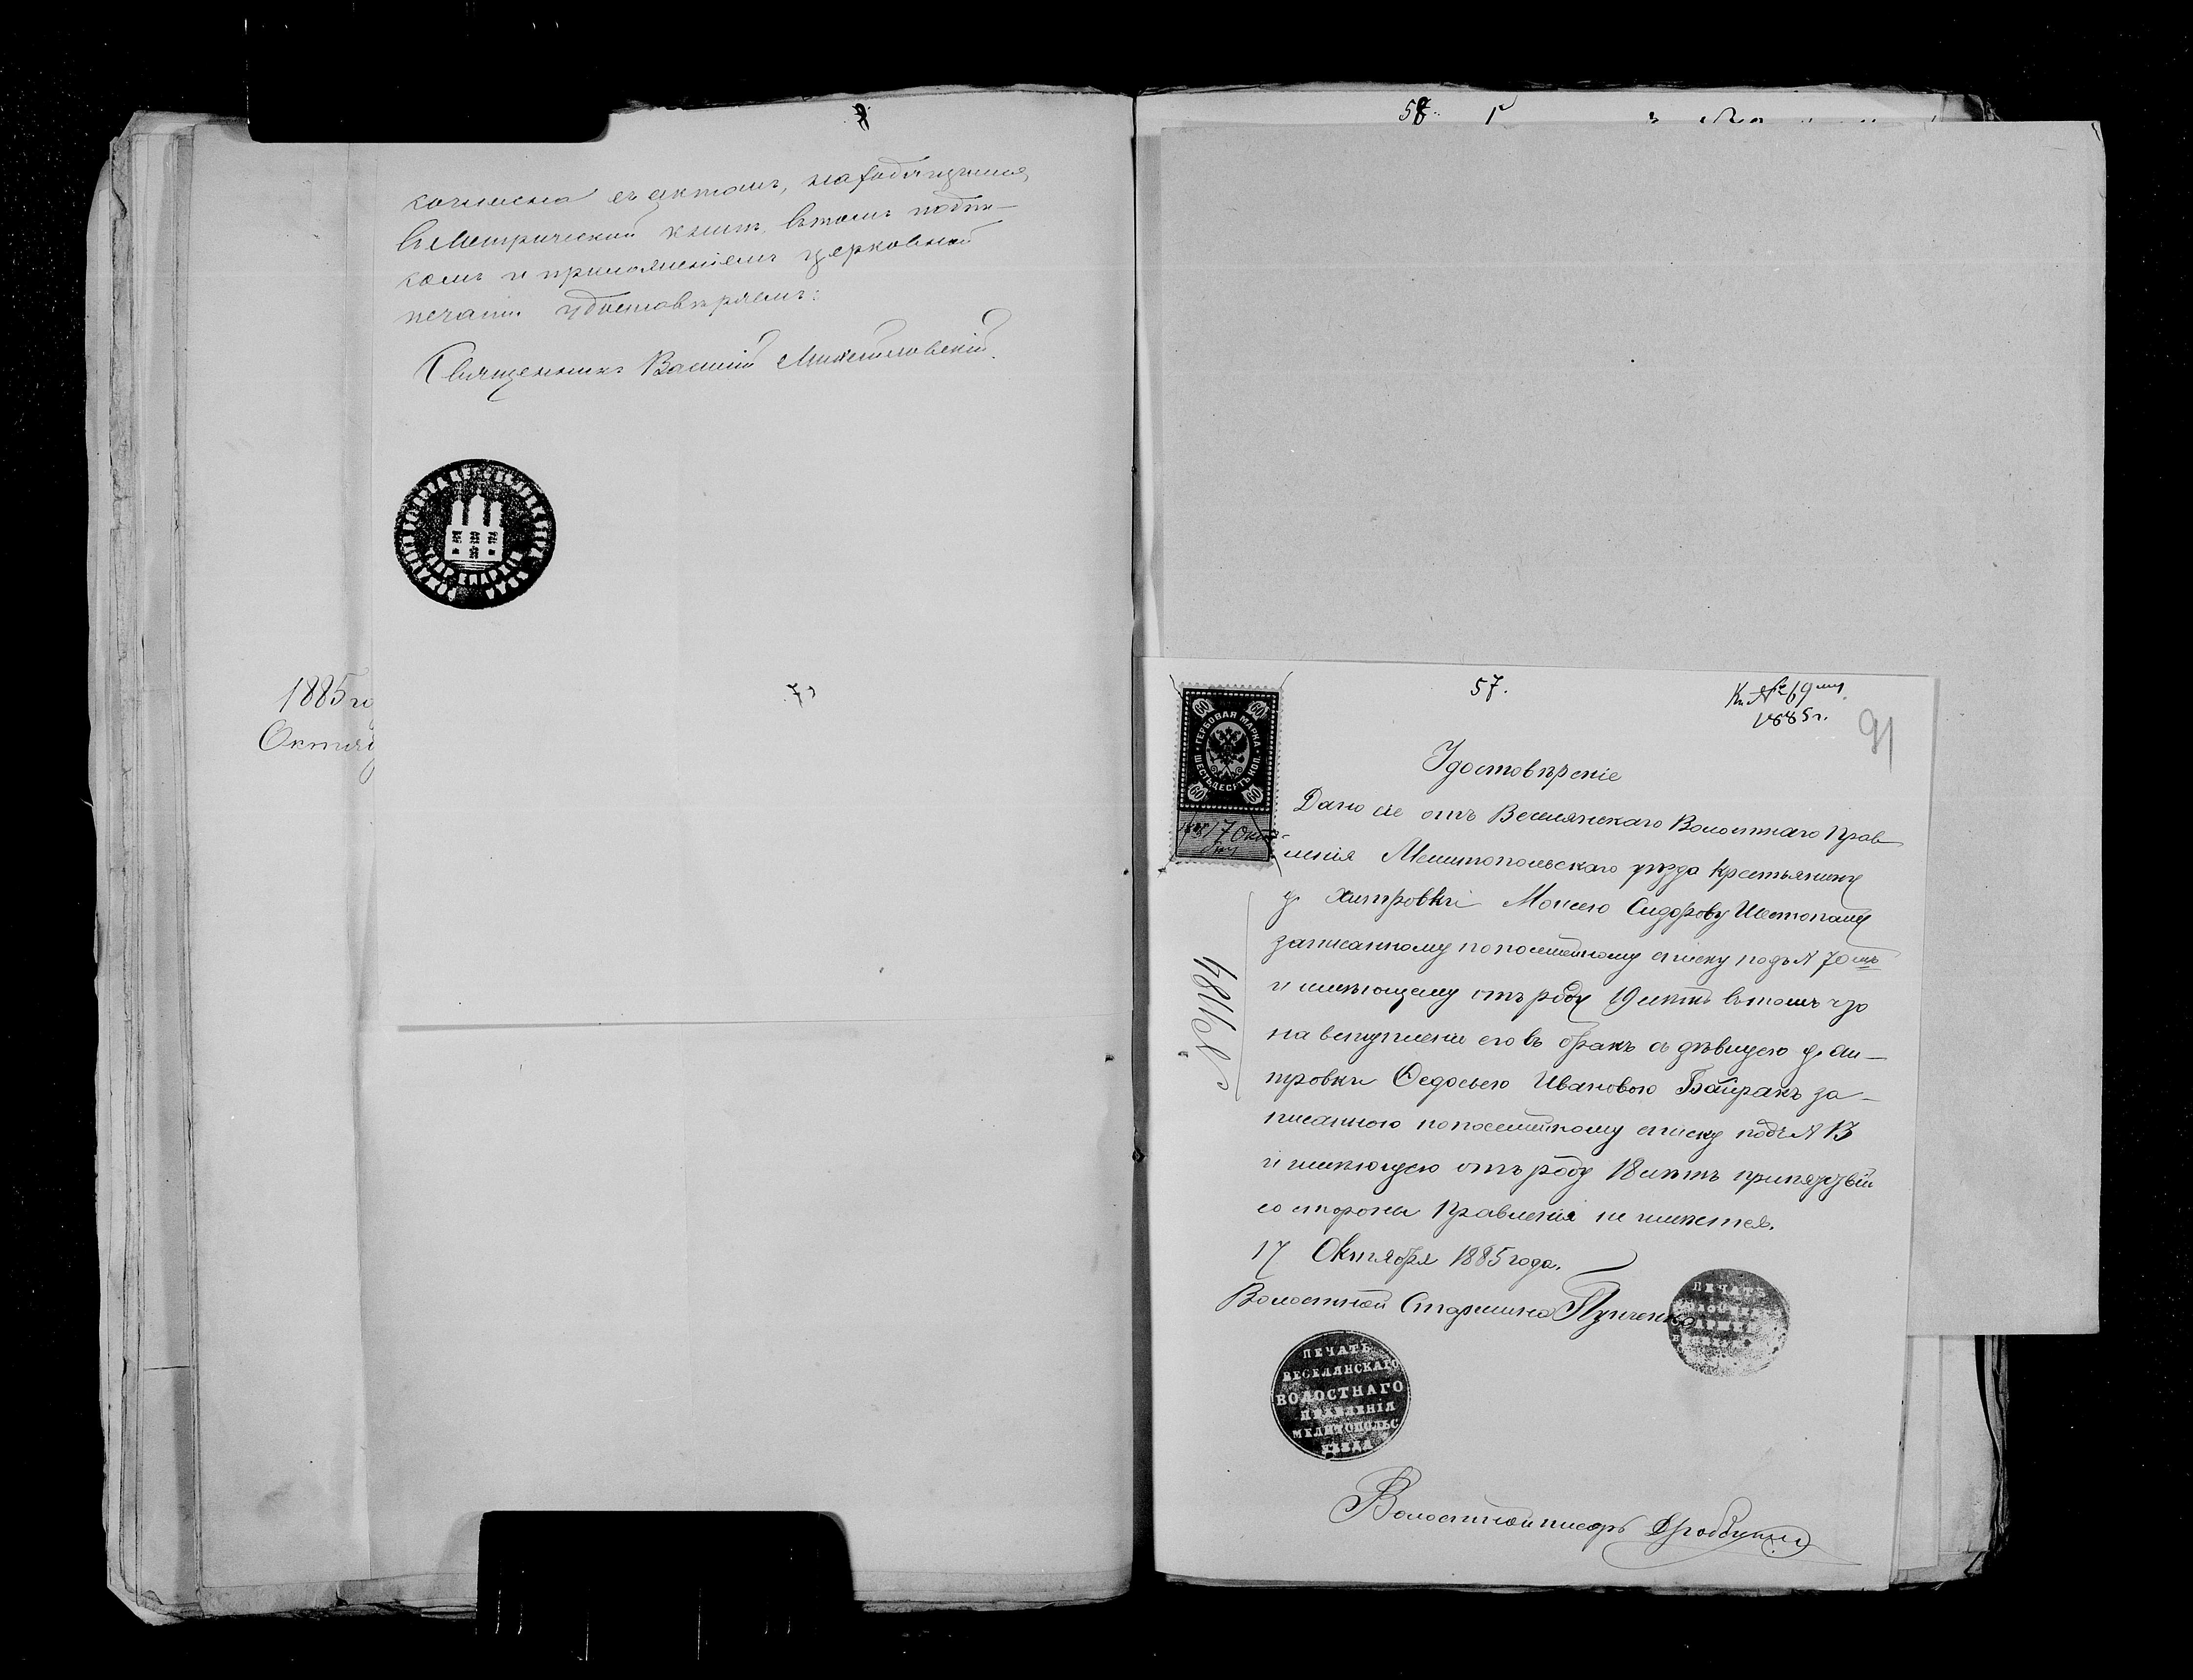 согласна съ актомъ, находящимся
въ Метрической книгѣ, въ томъ подпи-
сомъ и приложеніемъ церковной
печати удостовѣряемъ:
Священникъ Василій
ТАВР ЕПАРХІИ
1885 го
Октяб
7
58
57.
Къ № 69
1885 г.
91
60 60
ГЕРБОВАЯ МАРКА
ШЕСТЬДЕСЯТЪ КОП.
60 60
1885 17 Октя
бря
Удостовѣреніе
Дано сіе отъ Веселянскаго Волостнаго Прав-
ленія Мелитопольскаго уѣзда крестьянину
д. Хитровки Моисею Сидорову Шестопалу
записанному по посемейному списку подъ № 70мъ
и имѣющему отъ роду 19 лѣтъ въ томъ что
на вступленіе его въ бракъ съ дѣвицею д. Хи-
тровки Ѳедосьею Ивановою Байракъ за-
писанною по посемейному списку подъ № 13
и имѣющею отъ роду 18 лѣтъ припятствій
со стороны Правленія не имѣется.
17 Октября 1885 года.
№ 1184
Волостной Старшина
ПЕЧАТЬ
ВЕСЕЛЯНСКАГО
ВОЛОСТНАГО
ПРАВЛЕНІЯ
МЕЛИТОПОЛЬС
УѢЗДА
ПЕЧАТЬ
Волостной писарь